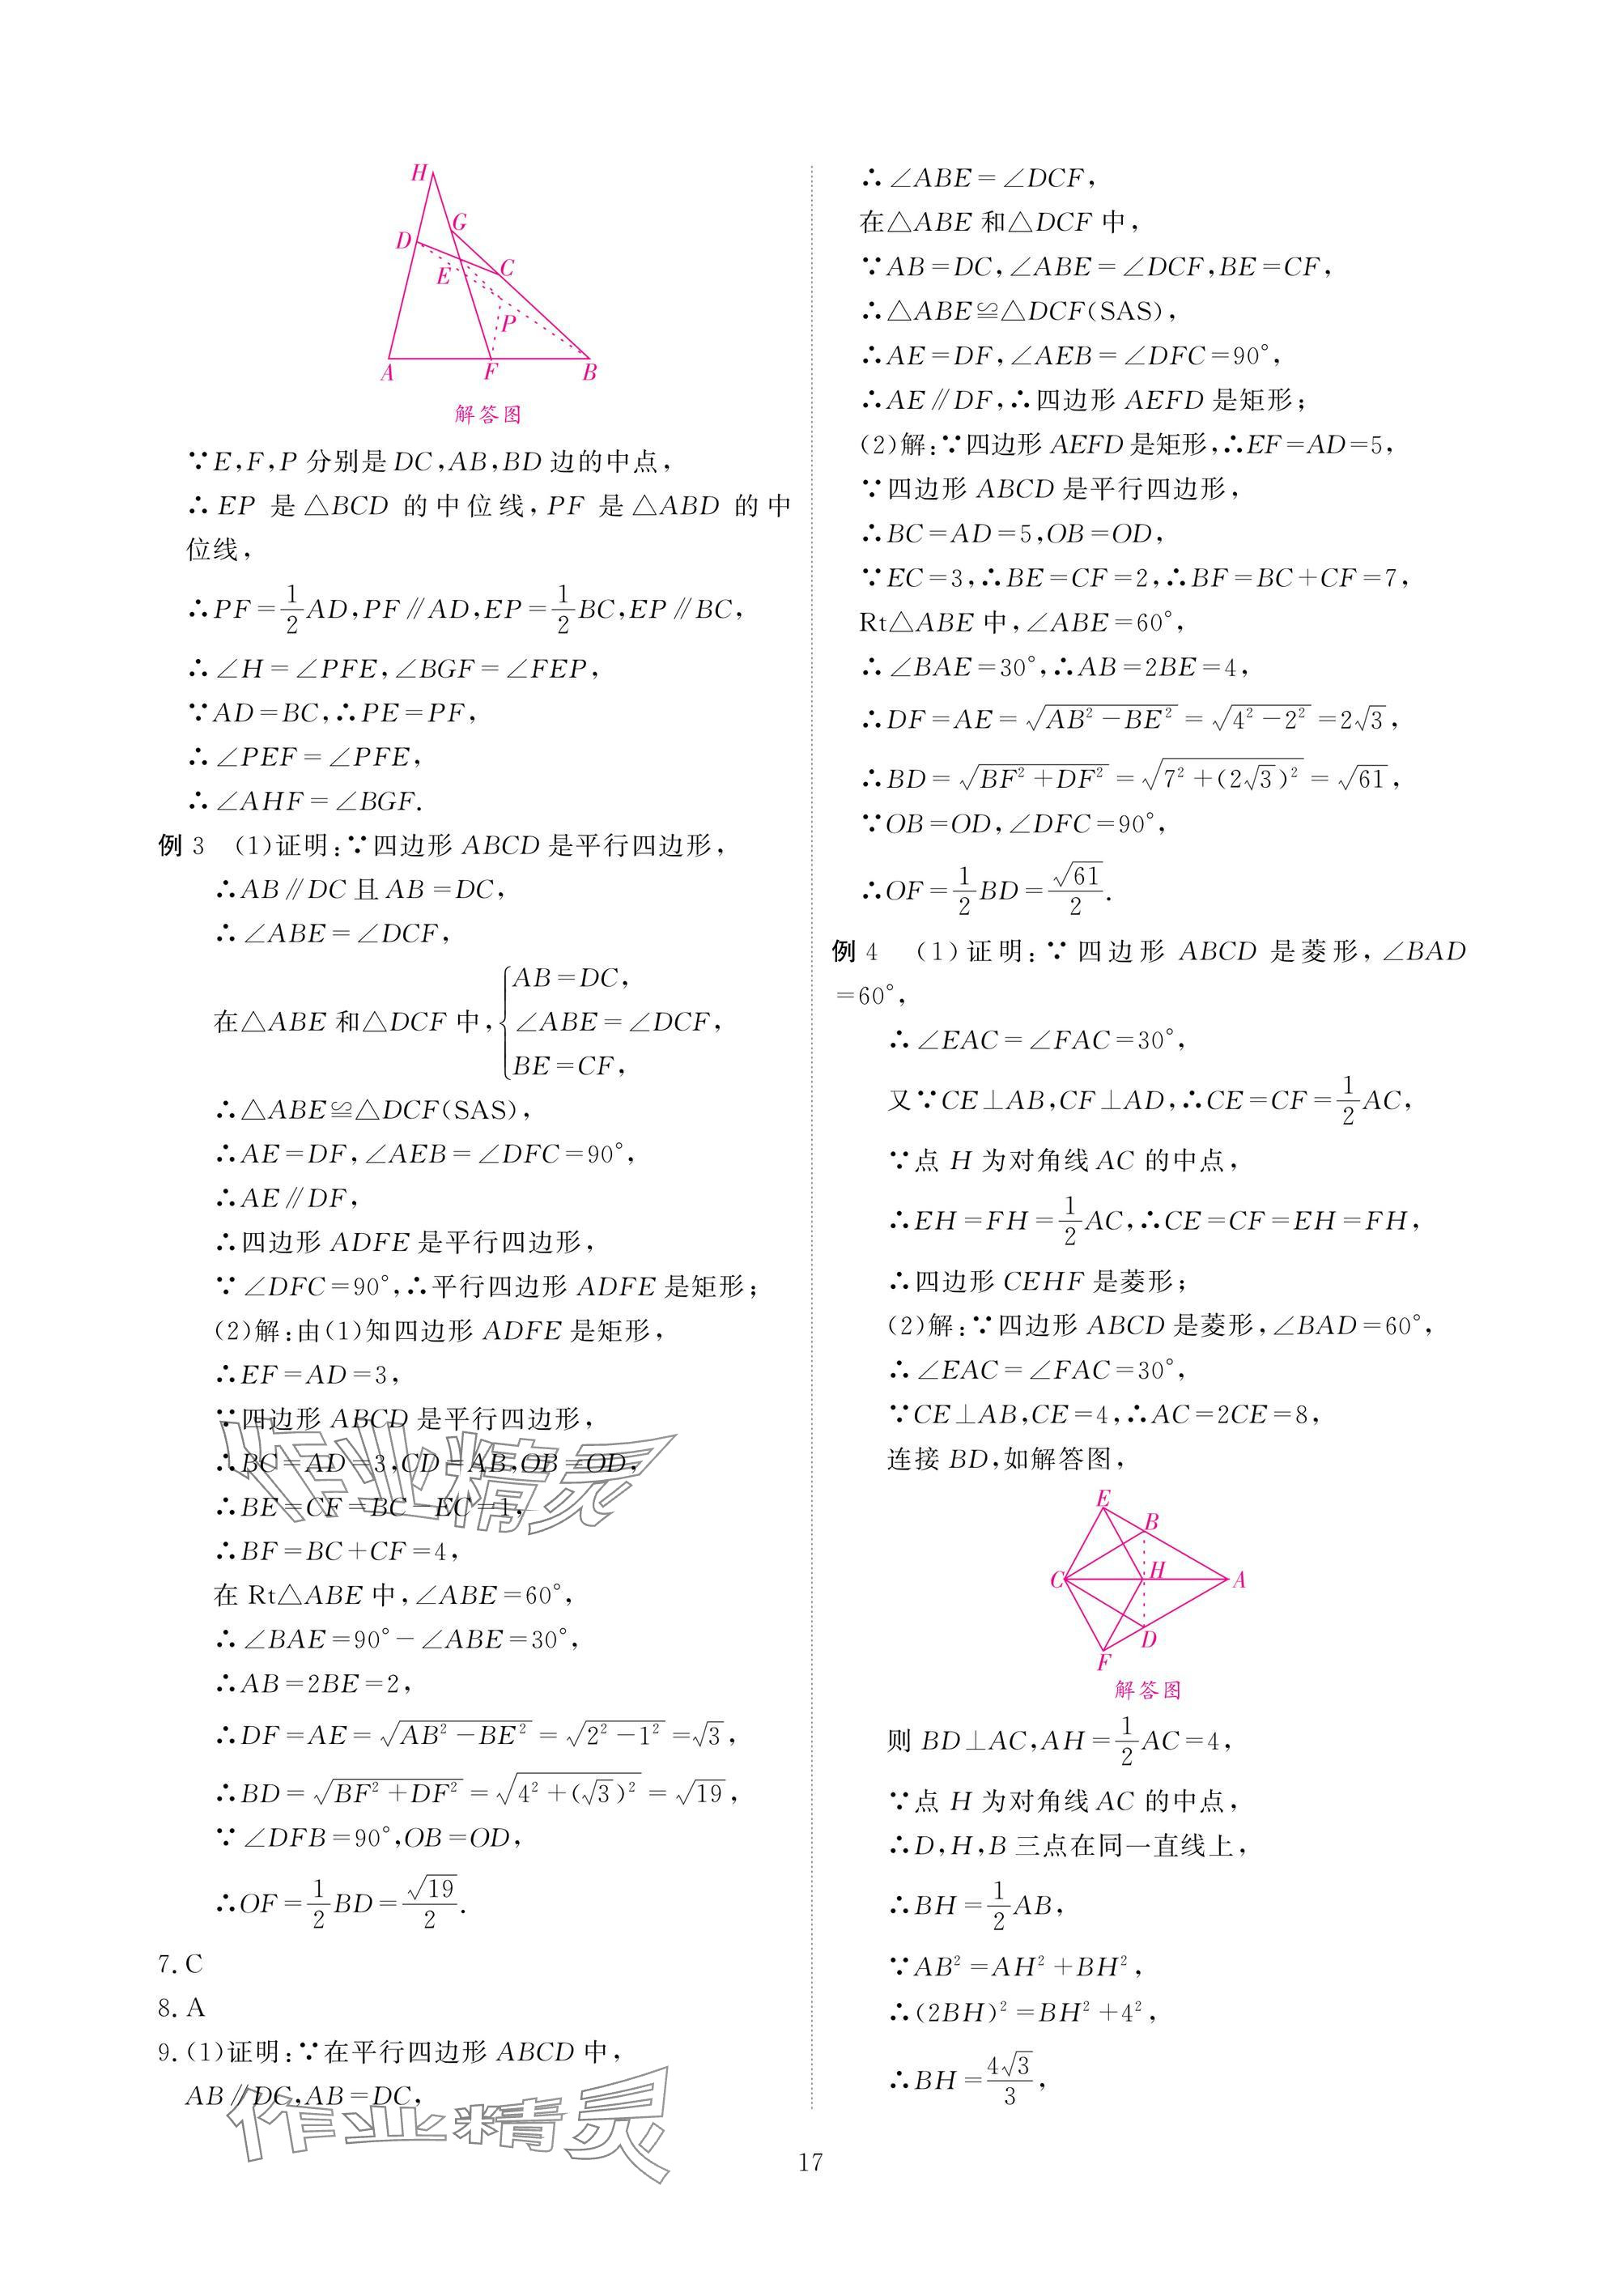 H
G
D
C
E
P
A
F
B
解答图
∵E,F,P 分别是 DC,AB,BD 边的中点,
∴ EP 是 △BCD 的中位线, PF 是 △ABD 的中
位线,
∴PF=1/2AD,PF∥AD,EP=1/2BC,EP∥BC,
∴∠H=∠PFE,∠BGF=∠FEP,
∵AD=BC,∴PE=PF,
∴∠PEF=∠PFE,
∴∠AHF=∠BGF.
例 3 (1)证明:∵四边形 ABCD 是平行四边形,
∴AB∥DC 且 AB=DC,
∴∠ABE=∠DCF,
在△ABE 和△DCF 中,{AB=DC,
∠ABE=∠DCF,
BE=CF,
∴△ABE≌△DCF(SAS),
∴AE=DF,∠AEB=∠DFC=90°,
∴AE∥DF,
∴四边形 ADFE 是平行四边形,
∵∠DFC=90°,∴平行四边形 ADFE 是矩形;
(2)解:由(1)知四边形 ADFE 是矩形,
∴EF=AD=3,
∵四边形 ABCD 是平行四边形,
∴BC=AD=3,CD=AB,OB=OD,
∴BE=CF=BC−EC=1,
∴BF=BC+CF=4,
在 Rt△ABE 中,∠ABE=60°,
∴∠BAE=90°−∠ABE=30°,
∴AB=2BE=2,
∴DF=AE=√(AB²−BE²)=√(2²−1²)=√3,
∴BD=√(BF²+DF²)=√(4²+(√3)²)=√19,
∵∠DFB=90°,OB=OD,
∴OF=1/2BD=√19/2.
7. C
8. A
9. (1)证明:∵在平行四边形 ABCD 中,
AB∥DC,AB=DC,
∴∠ABE=∠DCF,
在△ABE 和△DCF 中,
∵AB=DC,∠ABE=∠DCF,BE=CF,
∴△ABE≌△DCF(SAS),
∴AE=DF,∠AEB=∠DFC=90°,
∴AE∥DF,∴四边形 AEFD 是矩形;
(2)解:∵四边形 AEFD 是矩形,∴EF=AD=5,
∵四边形 ABCD 是平行四边形,
∴BC=AD=5,OB=OD,
∵EC=3,∴BE=CF=2,∴BF=BC+CF=7,
Rt△ABE 中,∠ABE=60°,
∴∠BAE=30°,∴AB=2BE=4,
∴DF=AE=√(AB²−BE²)=√(4²−2²)=2√3,
∴BD=√(BF²+DF²)=√(7²+(2√3)²)=√61,
∵OB=OD,∠DFC=90°,
∴OF=1/2BD=√61/2.
例 4 (1)证明:∵四边形 ABCD 是菱形,∠BAD
=60°,
∴∠EAC=∠FAC=30°,
又∵CE⊥AB,CF⊥AD,∴CE=CF=1/2AC,
∵点 H 为对角线 AC 的中点,
∴EH=FH=1/2AC,∴CE=CF=EH=FH,
∴四边形 CEHF 是菱形;
(2)解:∵四边形 ABCD 是菱形,∠BAD=60°,
∴∠EAC=∠FAC=30°,
∵CE⊥AB,CE=4,∴AC=2CE=8,
连接 BD,如解答图,
E
B
C
H
A
D
F
解答图
则 BD⊥AC,AH=1/2AC=4,
∵点 H 为对角线 AC 的中点,
∴D,H,B 三点在同一直线上,
∴BH=1/2AB,
∵AB²=AH²+BH²,
∴(2BH)²=BH²+4²,
∴BH=4√3/3,
作业精灵
作业精灵
17